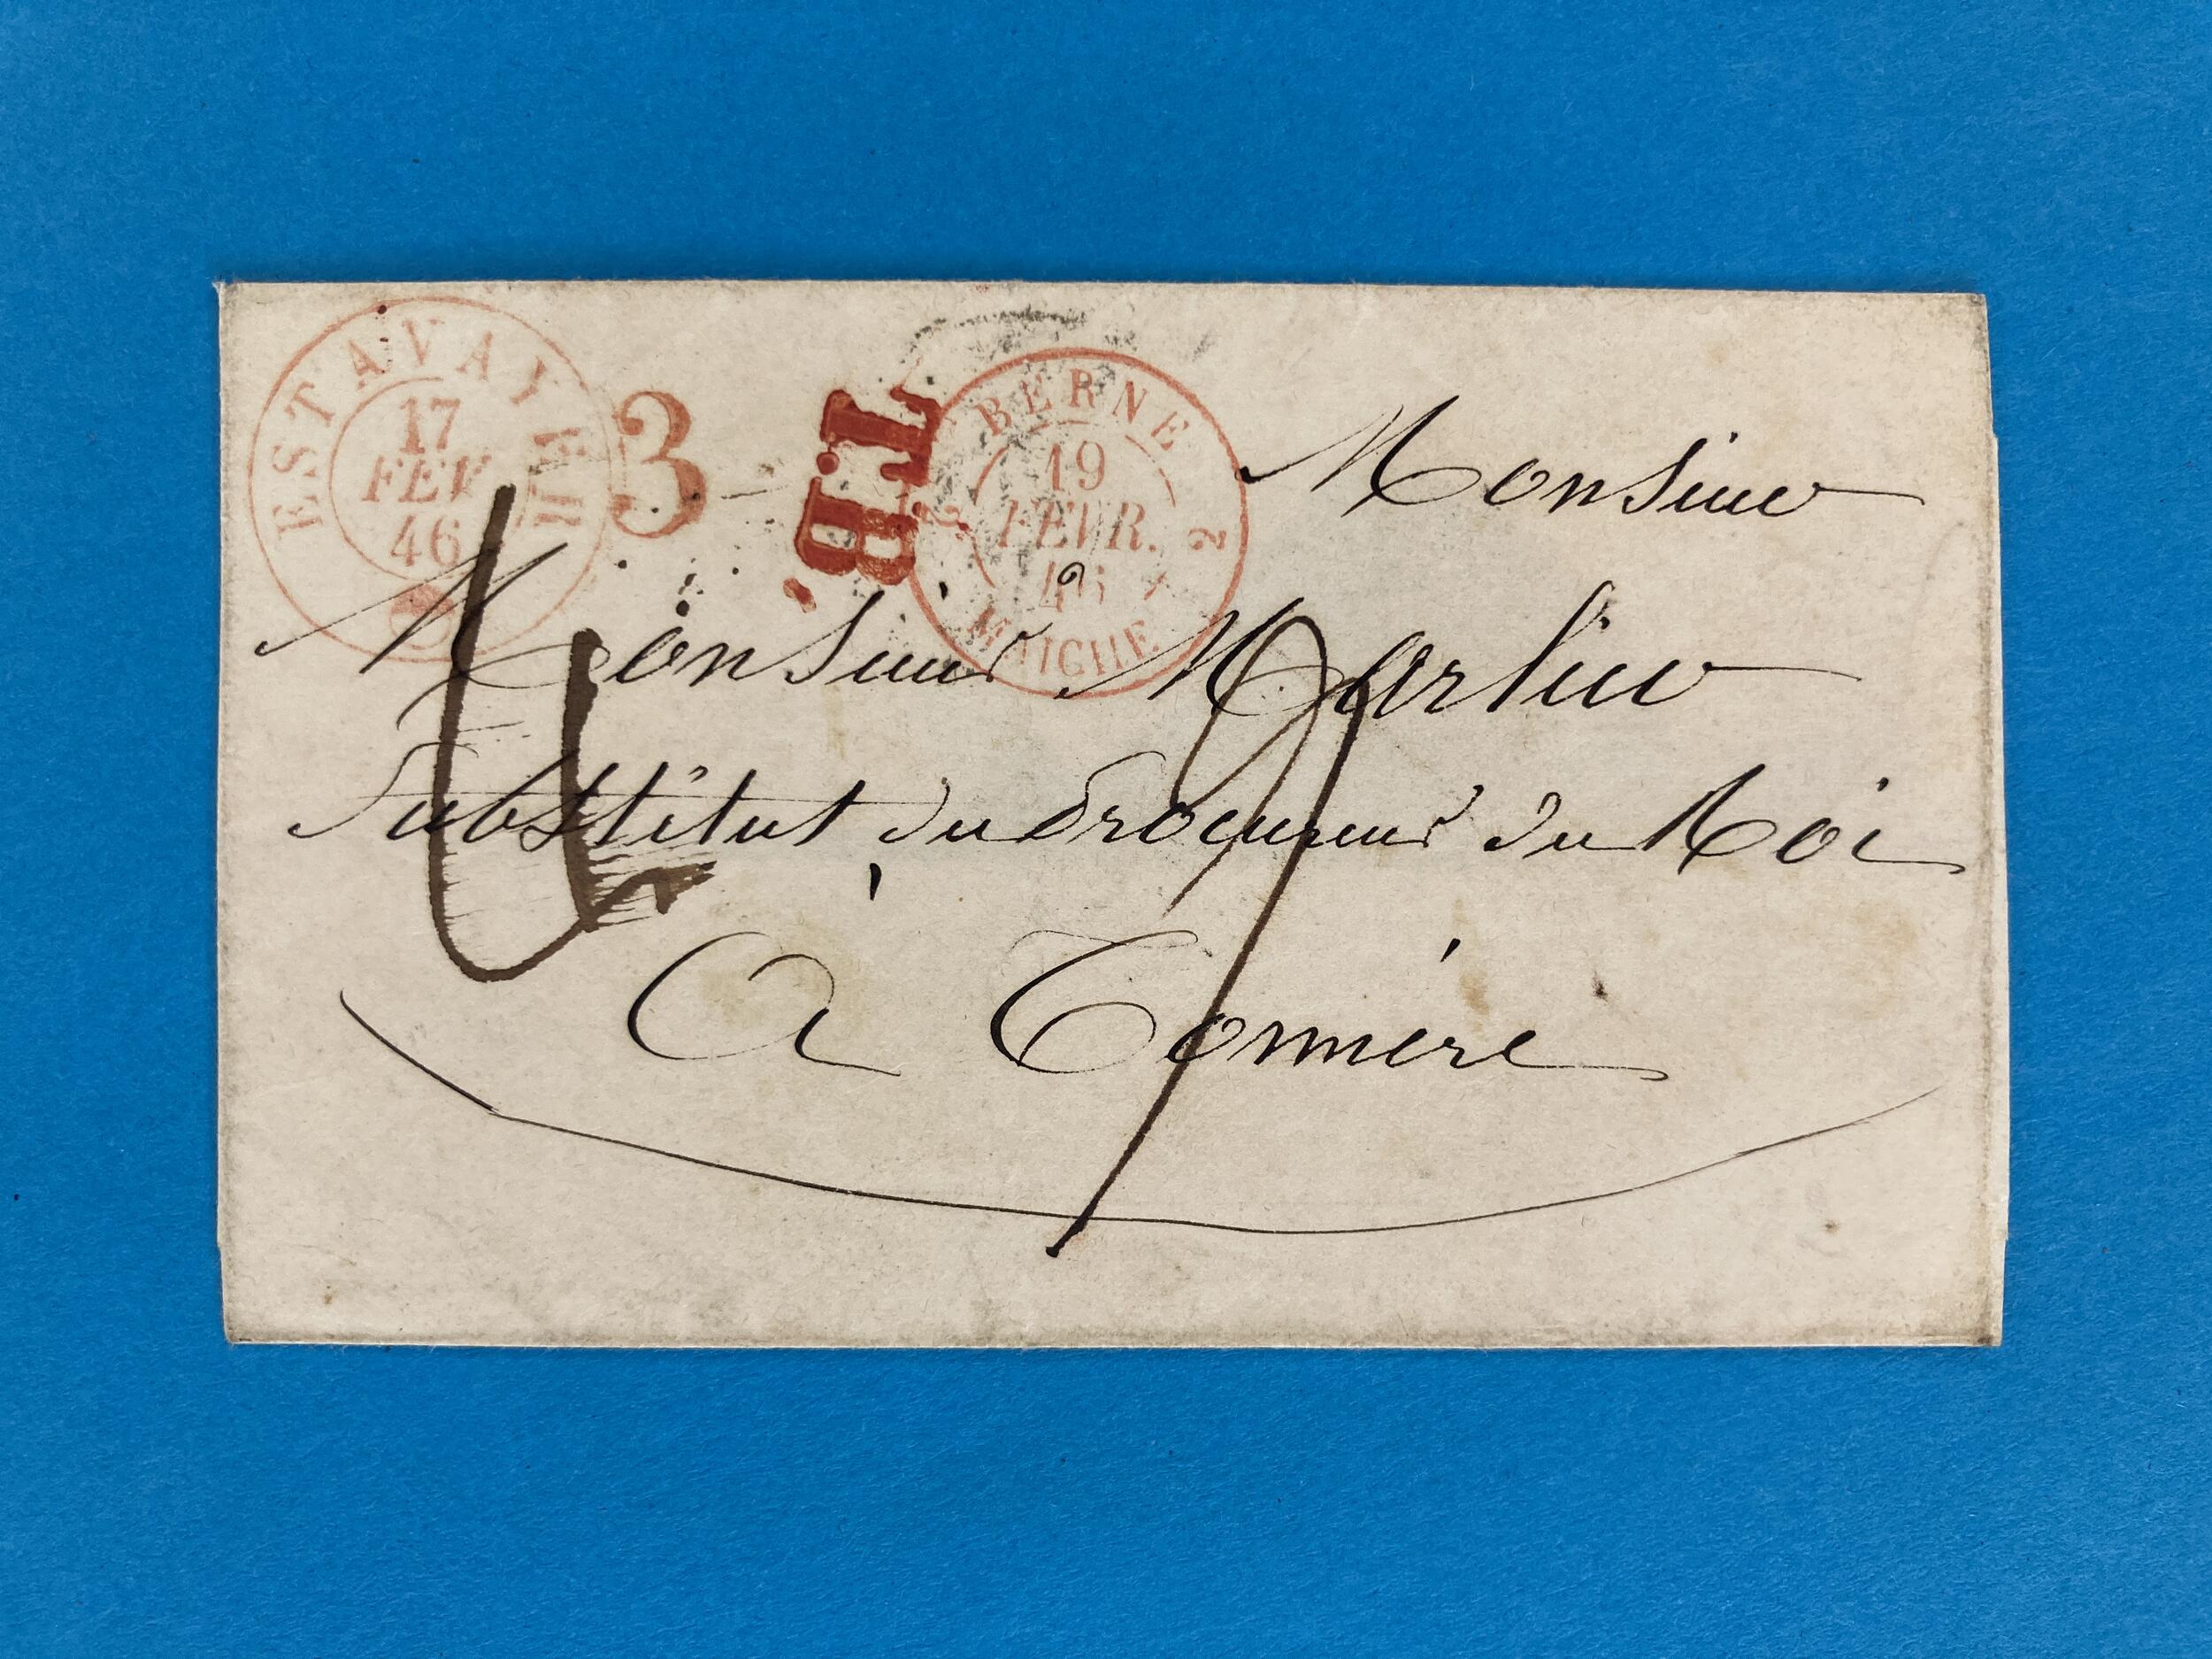 ESTAVAYER
17
FEV
46
3
T.B.
2 BERNE 2
19
FEVR.
46
MAICHE
Monsieur
Monsieur Martin
Substitut du Procureur du Roi
à Tonnére